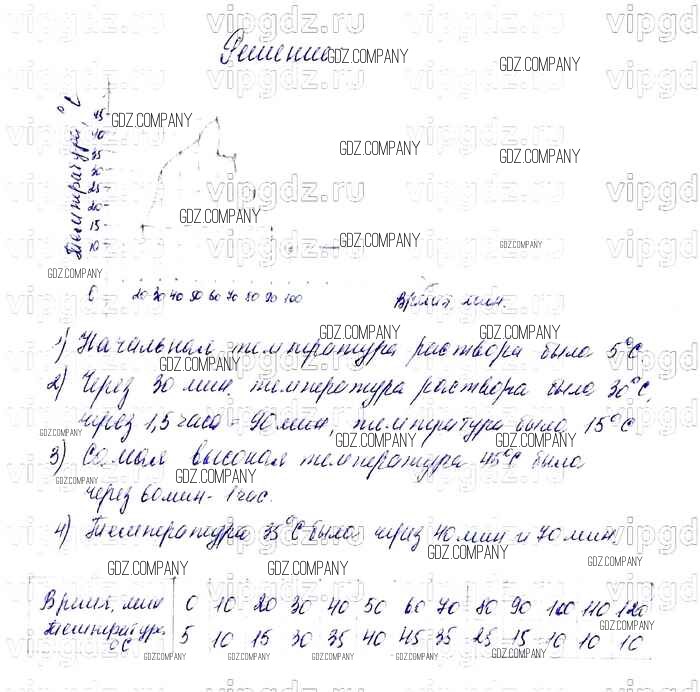 Решение
Температура, °C
45
40
35
30
25
20
15
10
0 20 30 40 50 60 70 80 90 100
Время, мин.
1) Начальная температура раствора была 5°C
2) Через 30 мин. температура раствора была 30°C,
через 1,5 часа - 90 мин, температура была 15°C
3) Самая высокая температура 45°C была
через 60 мин - 1 час.
4) Температура 35°C была через 40 мин и 70 мин.
Время, мин 0 10 20 30 40 50 60 70 80 90 100 110 120
Температура °C 5 10 15 30 35 40 45 35 25 15 10 10 10
GDZ.COMPANY
vipgdz.ru